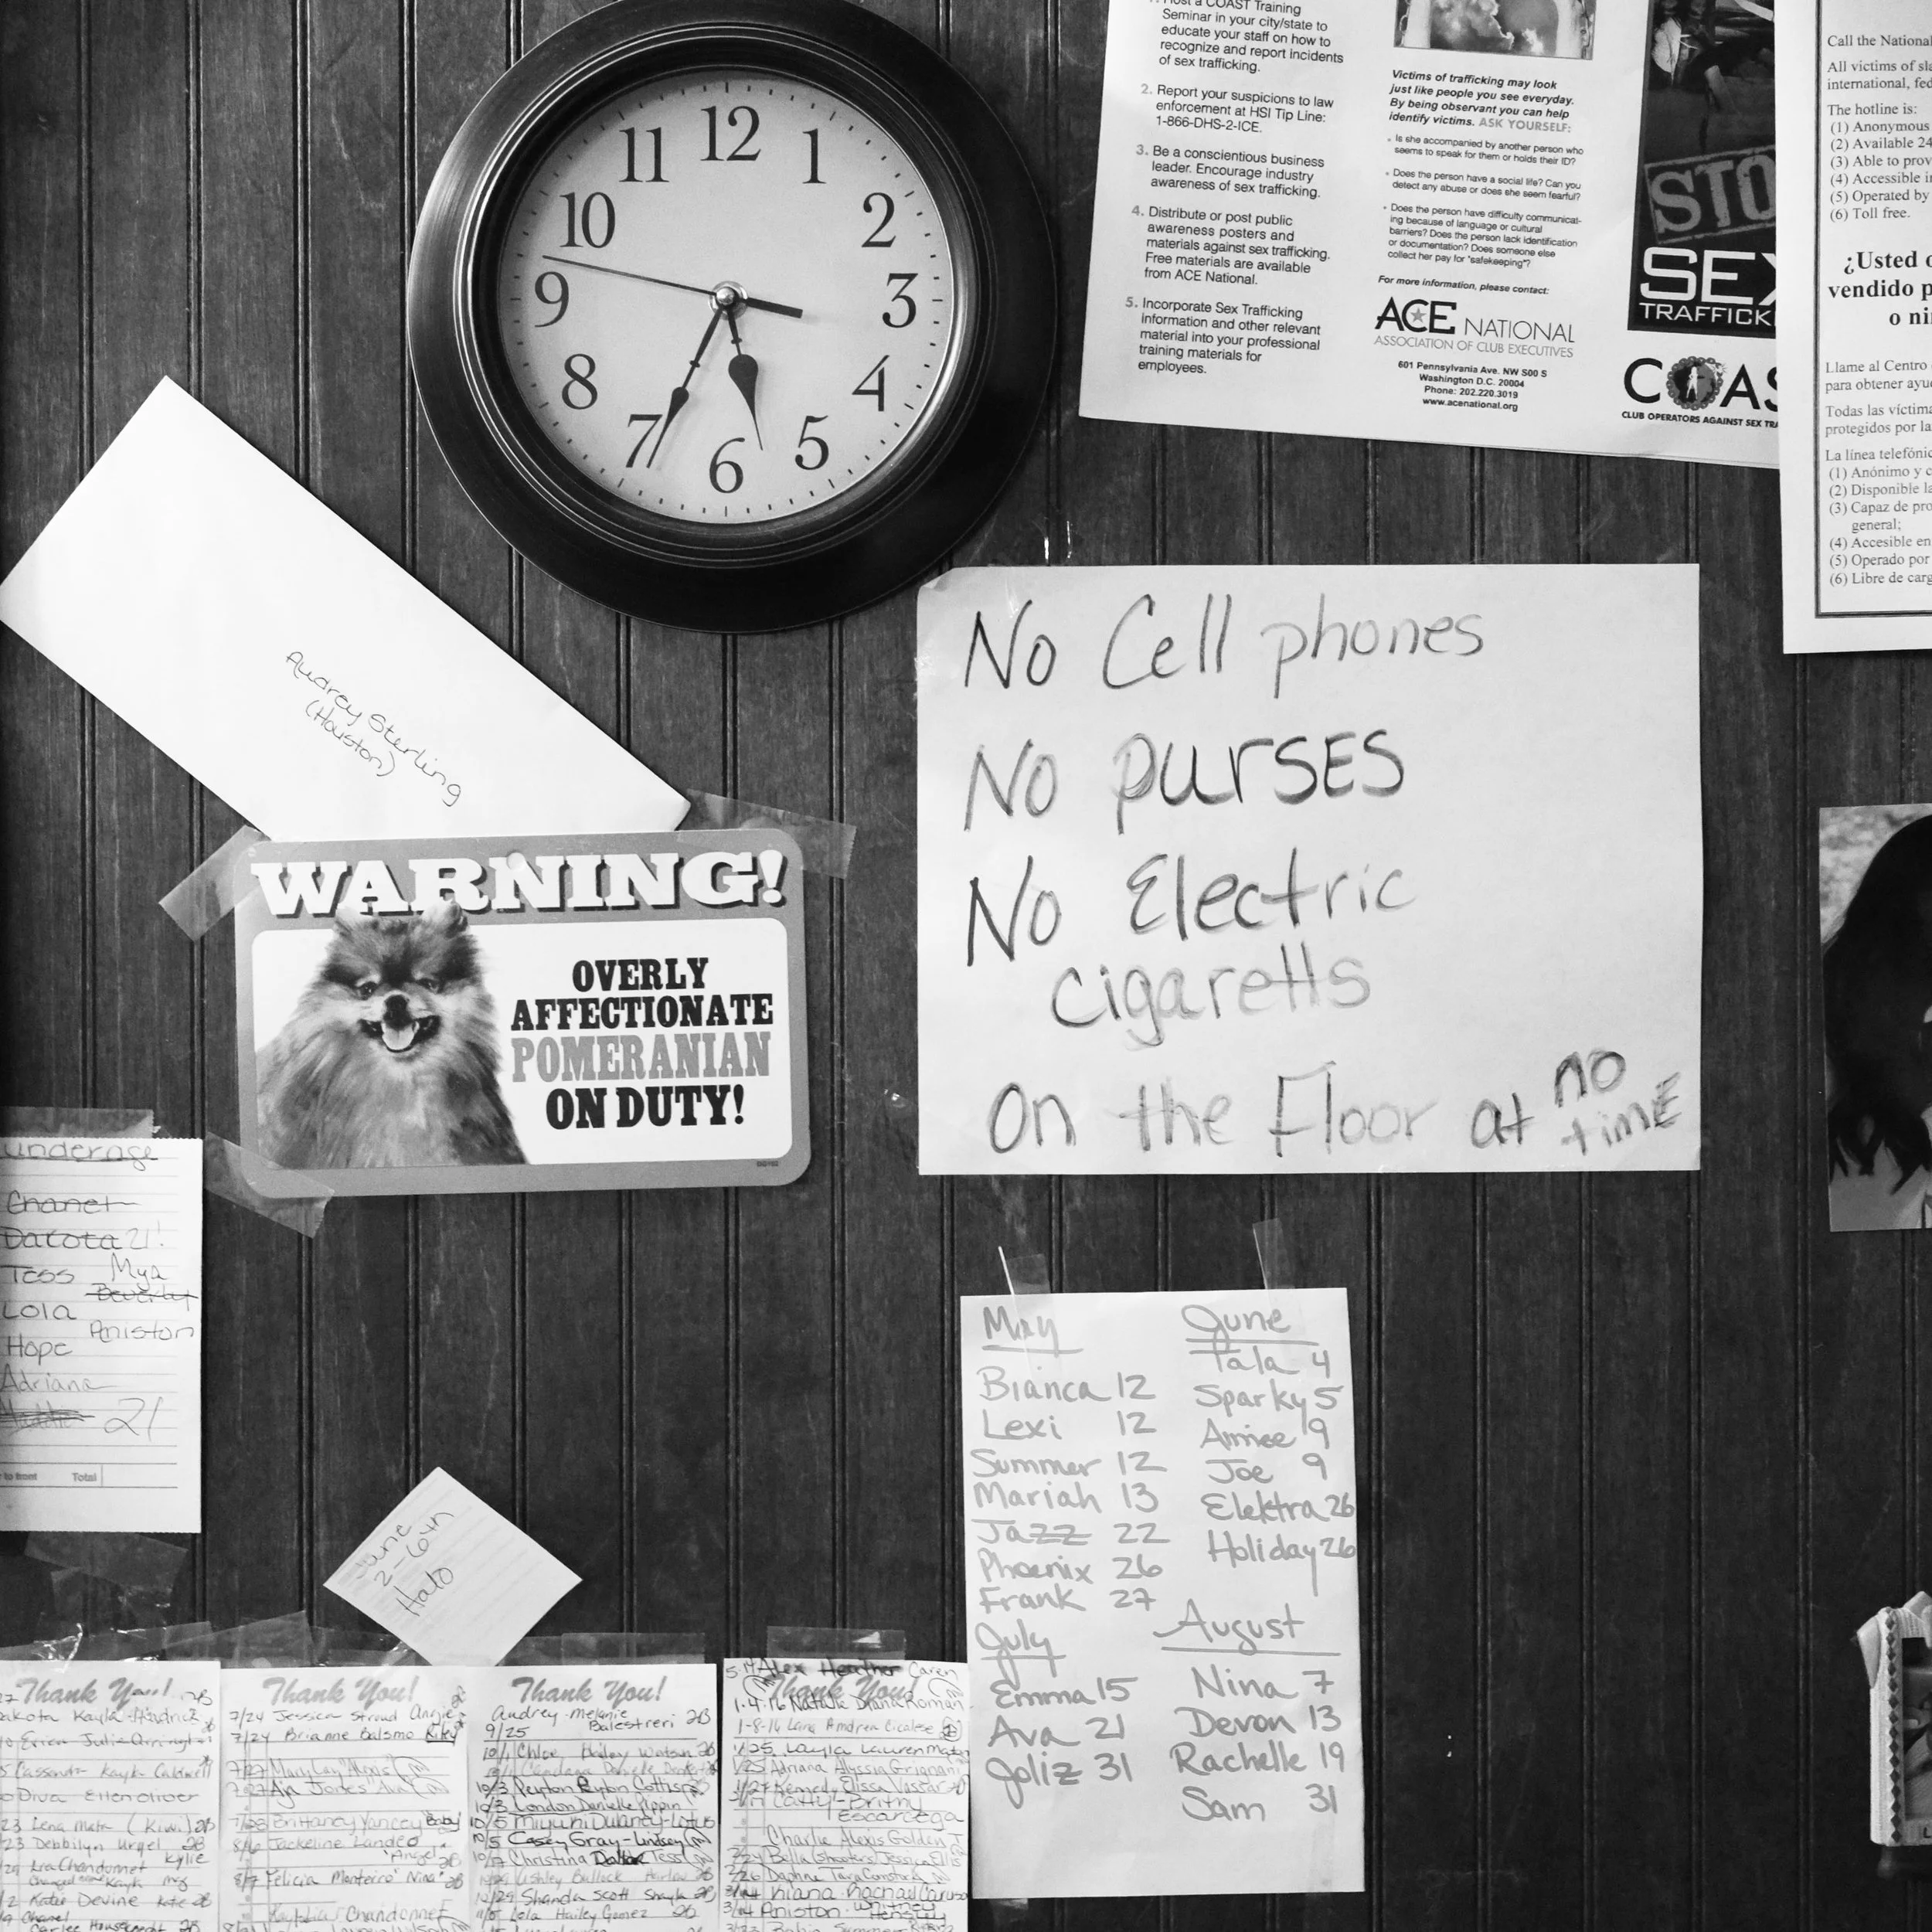 12
1
2
3
4
5
6
7
8
9
10
11
a COAST Training
Seminar in your city/state to
educate your staff on how to
recognize and report incidents
of sex trafficking.
2. Report your suspicions to law
enforcement at HSI Tip Line:
1-866-DHS-2-ICE.
3. Be a conscientious business
leader. Encourage industry
awareness of sex trafficking.
4. Distribute or post public
awareness posters and
materials against sex trafficking.
Free materials are available
from ACE National.
5. Incorporate Sex Trafficking
information and other relevant
material into your professional
training materials for
employees.
Victims of trafficking may look
just like people you see everyday.
By being observant you can help
identify victims. ASK YOURSELF:
• Is she accompanied by another person who
seems to speak for them or holds their ID?
• Does the person have a social life? Can you
detect any abuse or does she seem fearful?
• Does the person have difficulty communicat-
ing because of language or cultural
barriers? Does the person lack identification
or documentation? Does someone else
collect her pay for "safekeeping"?
For more information, please contact:
ACE NATIONAL
ASSOCIATION OF CLUB EXECUTIVES
601 Pennsylvania Ave. NW S00 S
Washington D.C. 20004
Phone: 202.220.3019
www.acenational.org
STO
SEX
TRAFFICK
COAS
CLUB OPERATORS AGAINST SEX TRA
Call the National
All victims of sla
international, fed
The hotline is:
(1) Anonymous
(2) Available 24
(3) Able to prov
(4) Accessible i
(5) Operated by
(6) Toll free.
¿Usted o
vendido p
o ni
Llame al Centro
para obtener ayu
Todas las víctima
protegidos por la
La línea telefónic
(1) Anónimo y c
(2) Disponible la
(3) Capaz de pro
general;
(4) Accesible en
(5) Operado por
(6) Libre de carg
Audrey Sterling
(Houston)
No Cell phones
No purSES
No Electric
cigaretts
on the Floor at no
timE
WARNING!
OVERLY
AFFECTIONATE
POMERANIAN
ON DUTY!
underage
Chanel
Dakota 21!
Tess Mya
Beverly
Lola
Aniston
Hope
Adriana
21
to front Total
June
Halo
May
Bianca 12
Lexi 12
Summer 12
Mariah 13
Jazz 22
Phoenix 26
Frank 27
June
Tala 4
Sparky 5
Aimee 9
Joe 9
Elektra 26
Holiday 26
July
Emma 15
Ava 21
Joliz 31
August
Nina 7
Devon 13
Rachelle 19
Sam 31
Thank You!
akota Kayla
Erica Julie
Cassondra Kayla
Diva Ellen Oliver
23 Lena Mata (Kiwi)
23 Debbilyn Urgel
Kylie
Katie Devine Kate
Chanel
Thank You!
7/24 Jessica Stroud Angie
7/24 Brianne Balsmo Riley
7/27 Mary Lay "Alexis"
7/27 Aja Jones "Ava"
7/28 Brittaney Yancey Baby
8/6 Jackeline Landeo
"Angel"
8/7 Felicia Monteiro "Nina"
Chandonnet
Thank You!
Audrey - Melanie
9/25 Balestreri
10/1 Chloe Hailey Watson
10/3 Peyton
10/3 London Danielle Pippin
10/5 Miyuki Dulaney-Lotus
10/5 Casey Gray-Lindsey
Christina Tess
Ashley Bullock Harlow
10/29 Shanda Scott Shayla
Lola Hailey Gomez
Alex Heather Caren
Thank You!
1-4-16 Natalie Diana Roman
1-8-16 Lana Andrea
1/25 Layla Lauren
1/25 Adriana Alyssia
Kennedy Elissa
Catty - Britny
Escarcega
Charlie Alexis Golden
Bella (Shooters) Jessica Ellis
2/26 Daphne Tara
Kiana Rachael Caruso
Aniston - Whitney
Hensley